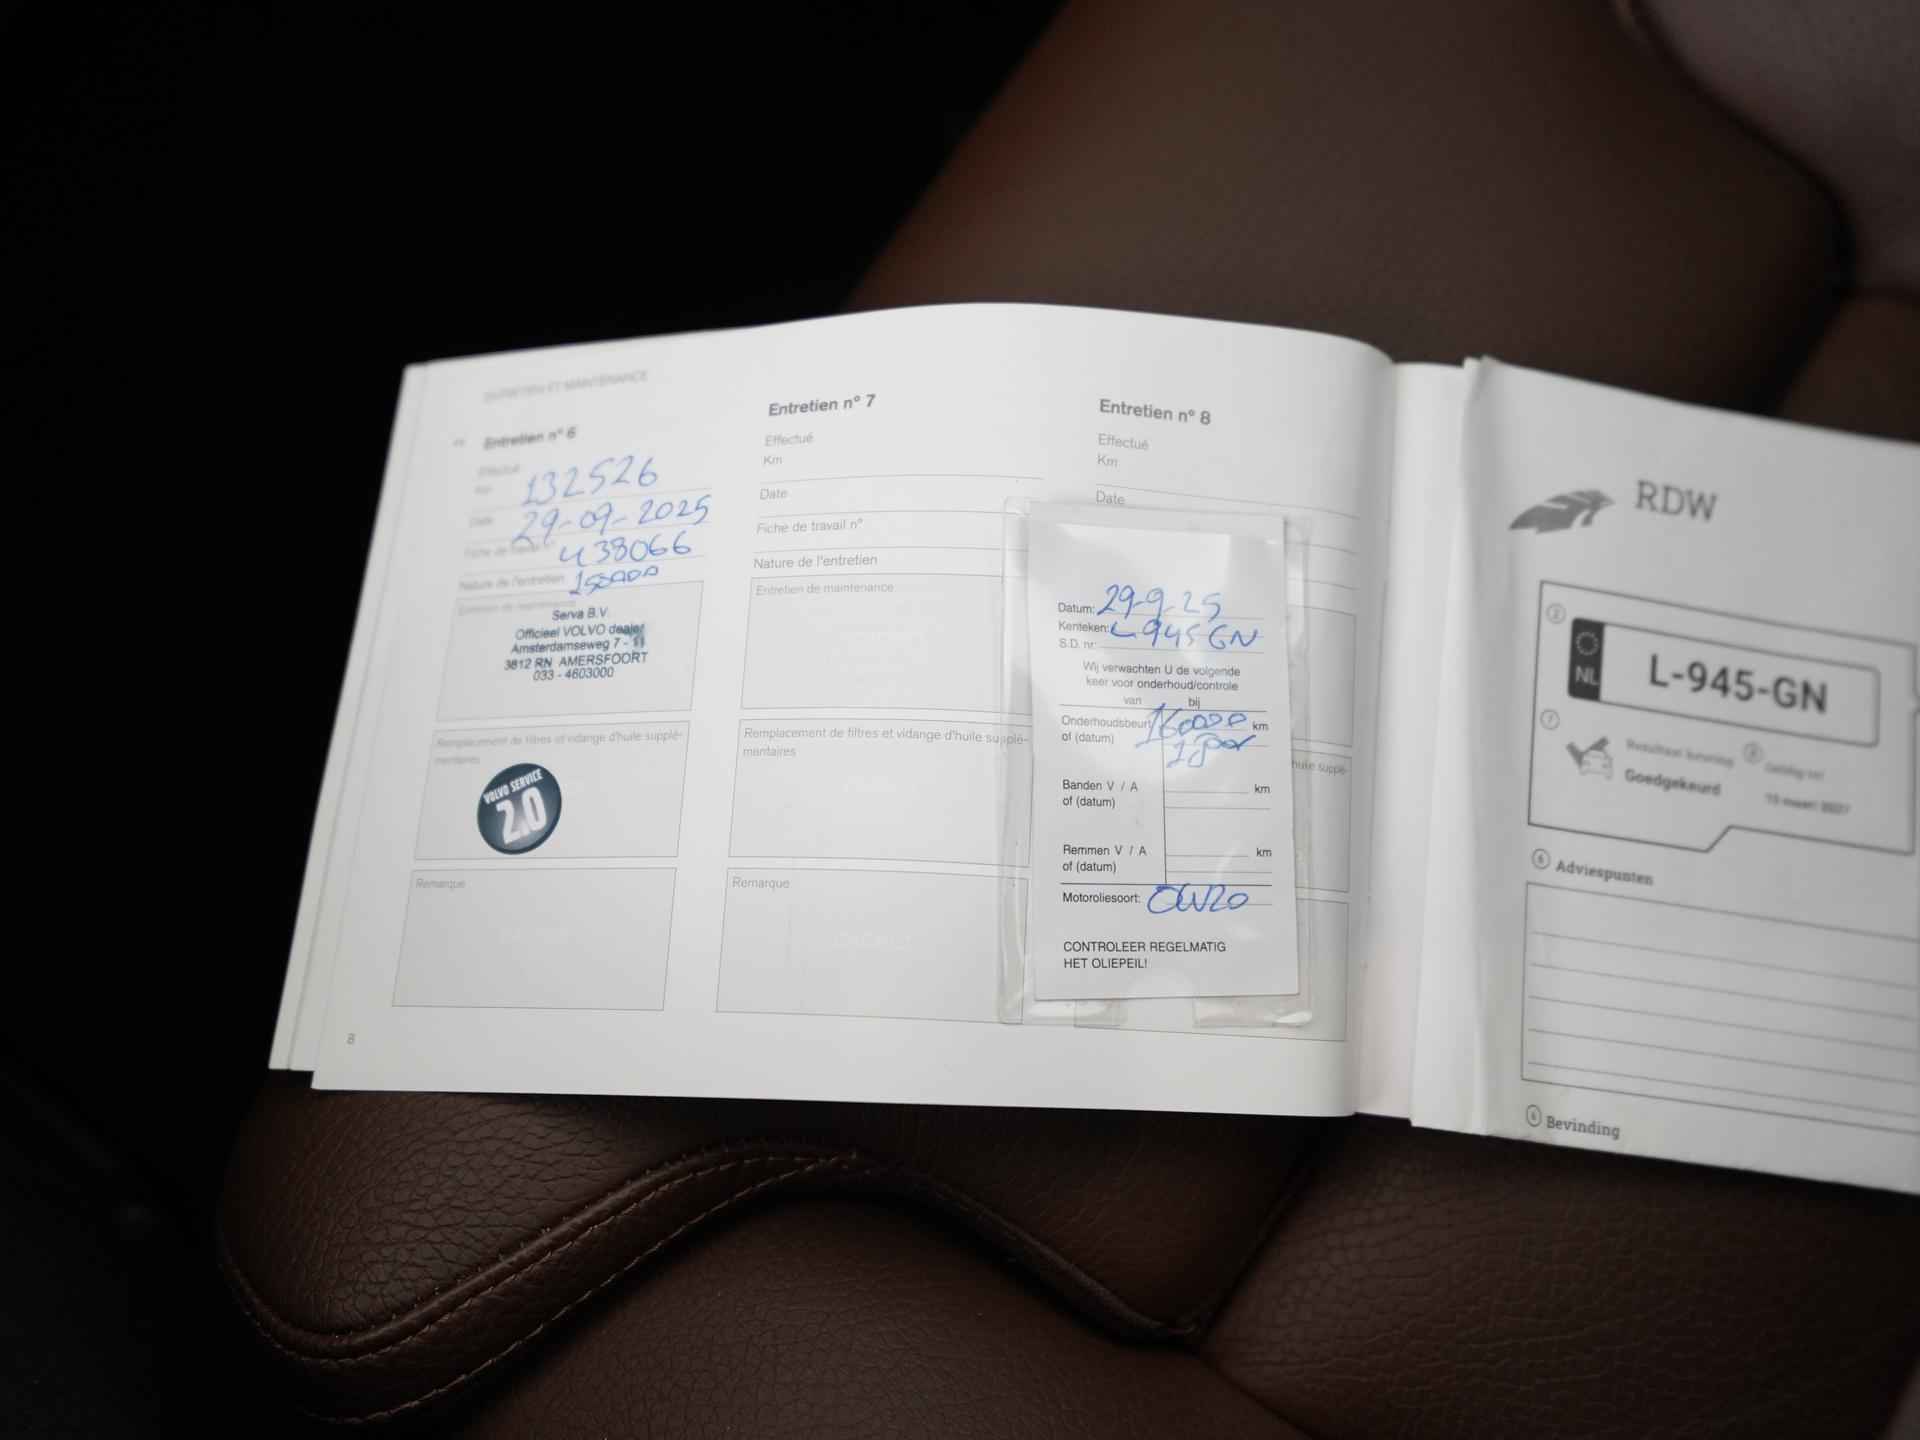 ENTRETIEN ET MAINTENANCE
Entretien n° 6
Effectué
Km 132526
Date 29-09-2025
Fiche de travail n° 438066
Nature de l'entretien
Entretien de maintenance
Serva B.V.
Officieel VOLVO dealer
Amsterdamseweg 7 - 11
3812 RN AMERSFOORT
033 - 4603000
Remplacement de filtres et vidange d'huile supplé-
mentaires
VOLVO SERVICE
2.0
Remarque
8
Entretien n° 7
Effectué
Km
Date
Fiche de travail n°
Nature de l'entretien
Entretien de maintenance
Remplacement de filtres et vidange d'huile supplé-
mentaires
Remarque
Entretien n° 8
Effectué
Km
Date
huile supplé-
Datum: 29-9-25
Kenteken: L 945 GN
S.D. nr.:
Wij verwachten U de volgende
keer voor onderhoud/controle
van bij
Onderhoudsbeurt 160000 km
of (datum) 1 Jaar
Banden V / A km
of (datum)
Remmen V / A km
of (datum)
Motoroliesoort: 0W20
CONTROLEER REGELMATIG
HET OLIEPEIL!
RDW
2
NL
L-945-GN
7
Resultaat keuring
Goedgekeurd
Geldig tot
6 Adviespunten
6 Bevinding